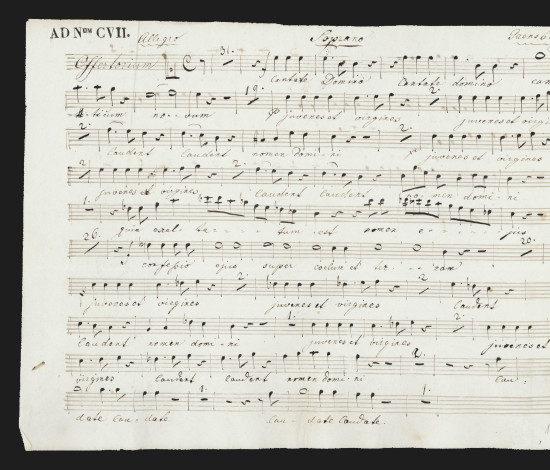 AD NUM CVII. Allegro Soprano
Offertorium C 31.
Cantate Domino Cantate domino can
ticum no - vum 19. juvenes et virgines 2. juvenes et virgin
2. laudent laudent nomen domi - ni 2. juvenes et virgines
2. juvenes et virgines 2. laudent laudent nomen domi - ni
1. quia exal - ta - - - tum est nomen e - - - jus
26. confessio ejus super coelum et ter - - ram 20.
juvenes et virgines 2. juvenes et virgines 2. laudent
laudent nomen domi - ni 1. juvenes et virgines 2. juvenes et
virgines laudent laudent nomen domi - ni 2. lau -
date lau - date 1. Lau - date Laudate. 1.